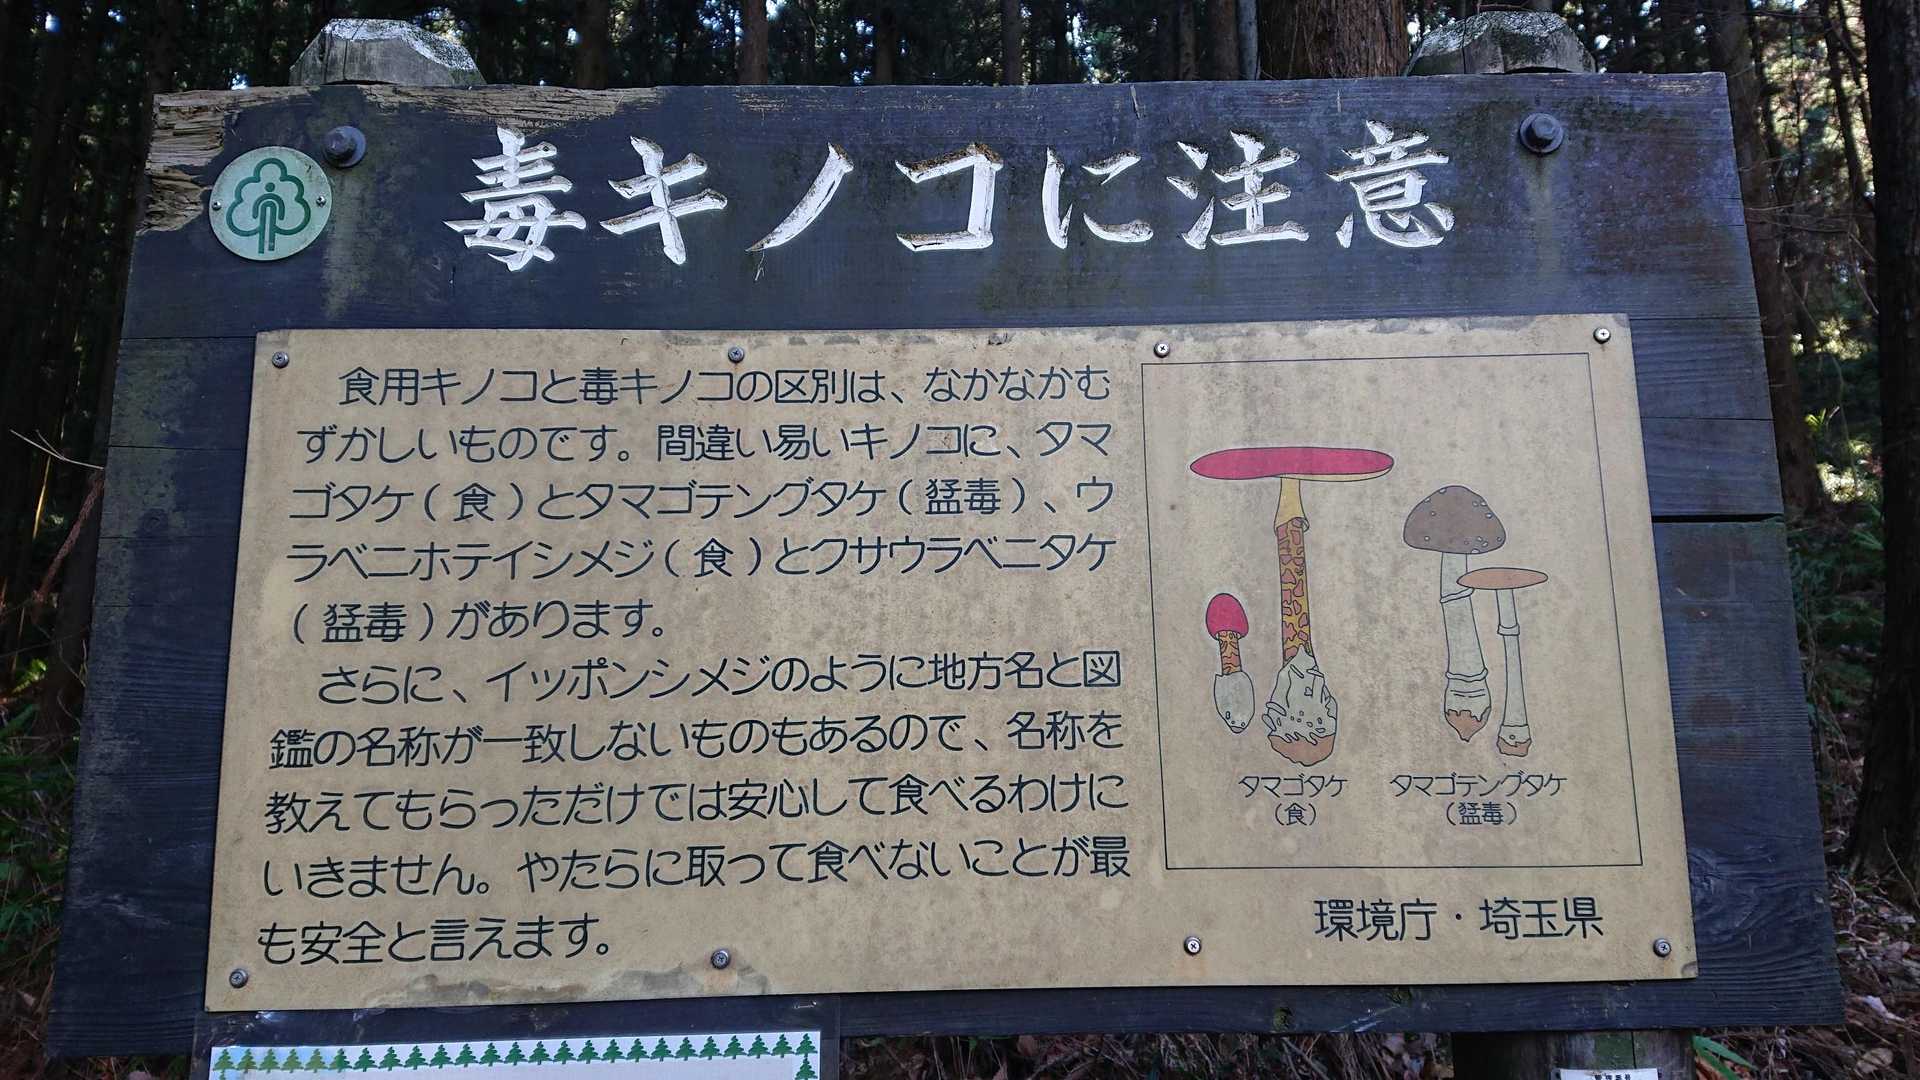 毒キノコに注意
食用キノコと毒キノコの区別は、なかなかむ
ずかしいものです。間違い易いキノコに、タマ
ゴタケ(食)とタマゴテングタケ(猛毒)、ウ
ラベニホテイシメジ(食)とクサウラベニタケ
(猛毒)があります。
さらに、イッポンシメジのように地方名と図
鑑の名称が一致しないものもあるので、名称を
教えてもらっただけでは安心して食べるわけに
いきません。やたらに取って食べないことが最
も安全と言えます。
タマゴタケ
(食)
タマゴテングタケ
(猛毒)
環境庁・埼玉県